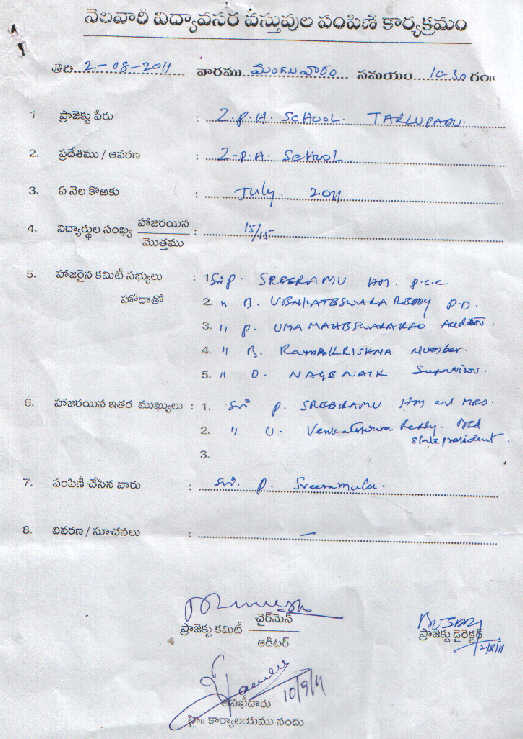 నెలవారీ విద్యావసర వస్తువుల పంపిణీ కార్యక్రమం
తేది 2-08-2011 వారము మంగళవారం సమయం 10-30 గం॥
1 ప్రాజెక్టు పేరు : Z.P.H. SCHOOL. TARLUPADU.
2. ప్రదేశము / ఆవరణ : Z.P.H. School
3. ఏ నెల కొఱకు : July. 2011
4. విద్యార్థుల సంఖ్య హాజరయిన / మొత్తము : 15/15
5. హాజరైన కమిటీ సభ్యులు : 1. Sri p. SREERAMU HM. p.c.c
హోదాతో 2. 〃 U. VENKATESWARA REDDY P.D.
3. 〃 p. UMA MAHESWARARAO Auditor.
4. 〃 B. RAMAKRISHNA Member.
5. 〃 D. NAGENAIK Supervisor.
6. హాజరయిన ఇతర ముఖ్యులు : 1. Sri p. SREERAMU HM and MEO.
2. 〃 U. Venkateswara Reddy. state president.
3.
7. పంపిణీ చేసిన వారు : Sri. p. Sreeramulu.
8. వివరణ / సూచనలు : —
ప్రాజెక్టు కమిటీ చైర్‌మెన్
ఆడిటర్
ప్రాజెక్టు డైరెక్టర్
2/8/11
10/9/11
కార్యాలయము నందు